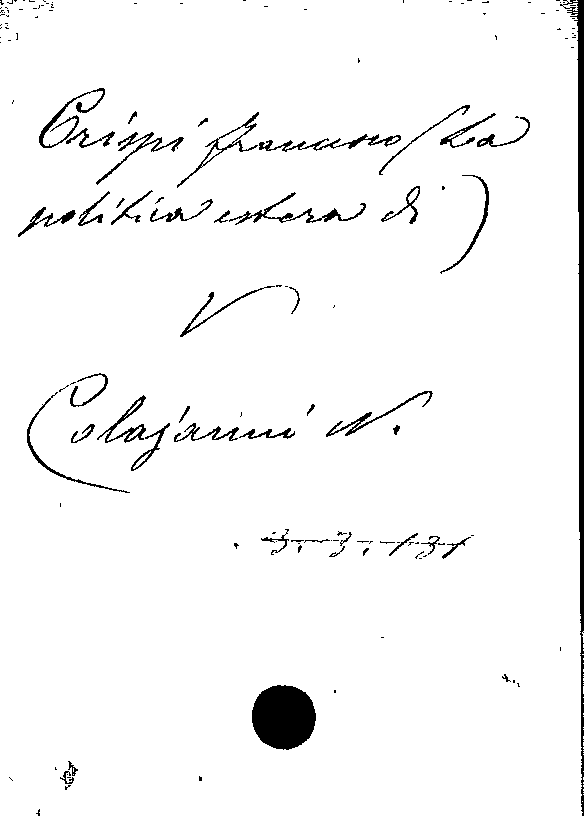 Crispi Francesco (La
politica estera di)
V
Colajanni N.
3. 3. 131